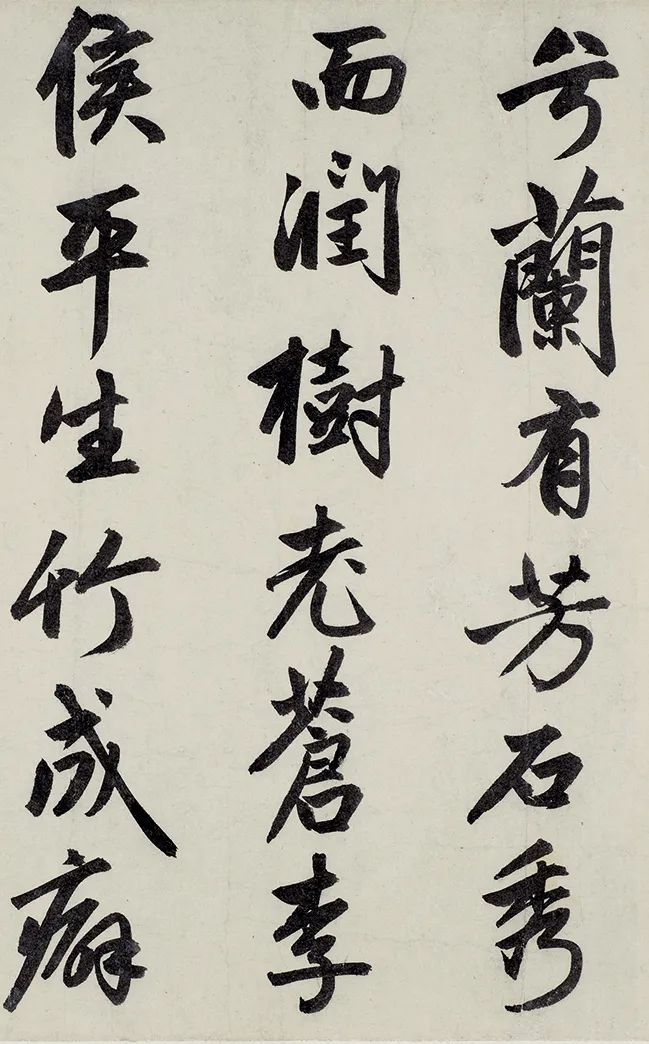 兮蘭有芳石秀
而潤樹老蒼李
侯平生竹成癖